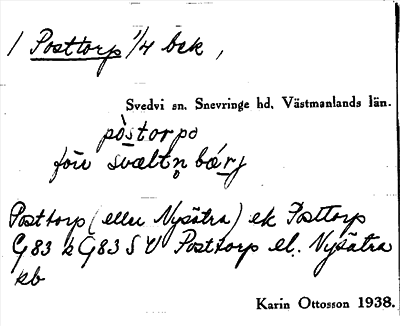 / Posttorp 1/4 bsk,
Svedvi sn. Snevringe hd. Västmanlands län.
pòstorpo
för svæltn bárj
Posttorp (eller Nysätra) ek Posttorp
G83 k G83 SV Posttorp el. Nysätra
kb
Karin Ottosson 1938.